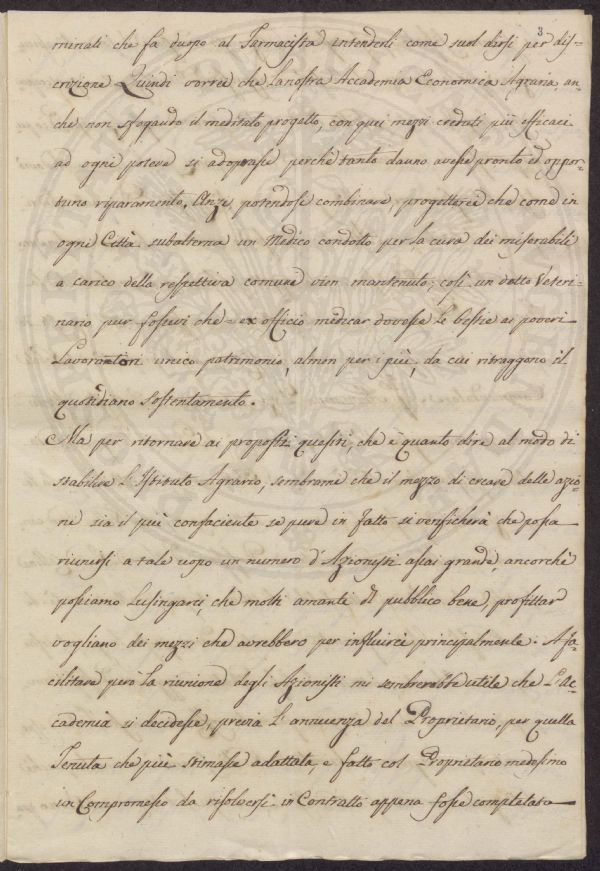 3
minati che fa duopo al Farmacista intenderli come suol dirsi per dis-
crizione Quindi vorrei che la nostra Accademia Economica Agraria, an-
che non sfogando il meditato progetto, con quei mezzi creduti più efficaci
ad ogni potere si adoprasse perchè tanto danno avesse pronto ed oppor-
tuno riparamento. Anzi potendosi combinare, progetterei che come in
ogni Città subalterna un Medico condotto per la cura dei miserabili
a carico della respettiva comune vien mantenuto; così un dotto Veteri-
nario pur fossevi che = ex officio medicar dovesse le bestie ai poveri
Lavoratori unico patrimonio, almen per i più, da cui ritraggono il
quotidiano sostentamento.
Ma per ritornare ai propositi quesiti, che è quanto dire al modo di
stabilire l'Istituto Agrario, sembrami che il mezzo di creare delle azio-
ni sia il più confaciente se pure in fatto si verificherà che possa
riunirsi a tale uopo un numero d'Azionisti assai grande, ancorchè
possiamo Lusingarci, che molti amanti del pubblico bene, profittar
vogliano dei mezzi che avrebbero per influirci principalmente. A fa-
cilitare però la riunione degli Azionisti mi sembrerebbe utile che l'Ac-
cademia si decidesse, previa l'annuenza del Proprietario, per quella
Tenuta che più stimasse adattata, e fatto col Proprietario medesimo
un Compromesso da risolversi in Contratto appena fosse completato